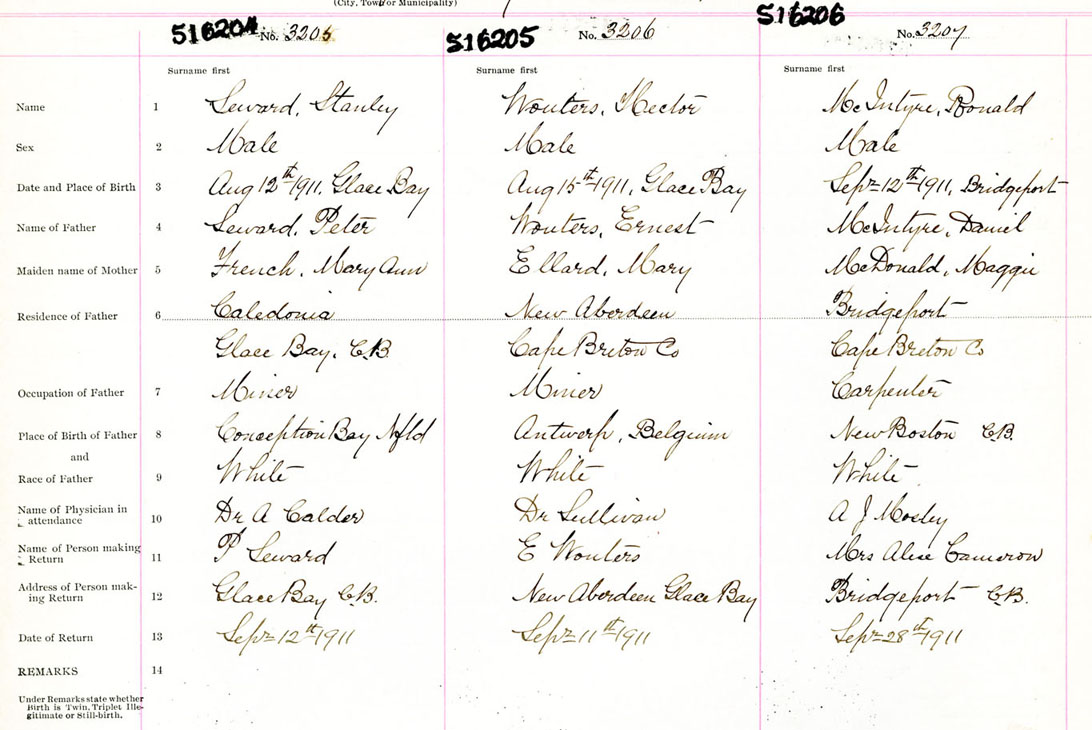 (City, Town or Municipality)
516204 No. 3205 516205 No. 3206 516206 No. 3207
Surname first Surname first Surname first
Name 1 Seward, Stanley Wouters, Hector McIntyre, Ronald
Sex 2 Male Male Male
Date and Place of Birth 3 Aug 12th 1911, Glace Bay Aug 15th 1911, Glace Bay Sept 12th 1911, Bridgeport
Name of Father 4 Seward, Peter Wouters, Ernest McIntyre, Daniel
Maiden name of Mother 5 French, Mary Ann Ellard, Mary McDonald, Maggie
Residence of Father 6 Caledonia New Aberdeen Bridgeport
Glace Bay, C.B. Cape Breton Co Cape Breton Co
Occupation of Father 7 Miner Miner Carpenter
Place of Birth of Father 8 Conception Bay Nfld Antwerp, Belgium New Boston C.B.
and
Race of Father 9 White White White
Name of Physician in
attendance 10 Dr A Calder Dr Sullivan A J Mosley
Name of Person making
Return 11 P Seward E Wouters Mrs Cameron
Address of Person mak-
ing Return 12 Glace Bay C.B. New Aberdeen Glace Bay Bridgeport C.B.
Date of Return 13 Sept 12th 1911 Sept 11th 1911 Sept 28th 1911
REMARKS 14
Under Remarks state whether
Birth is Twin, Triplet Ille-
gitimate or Still-birth.